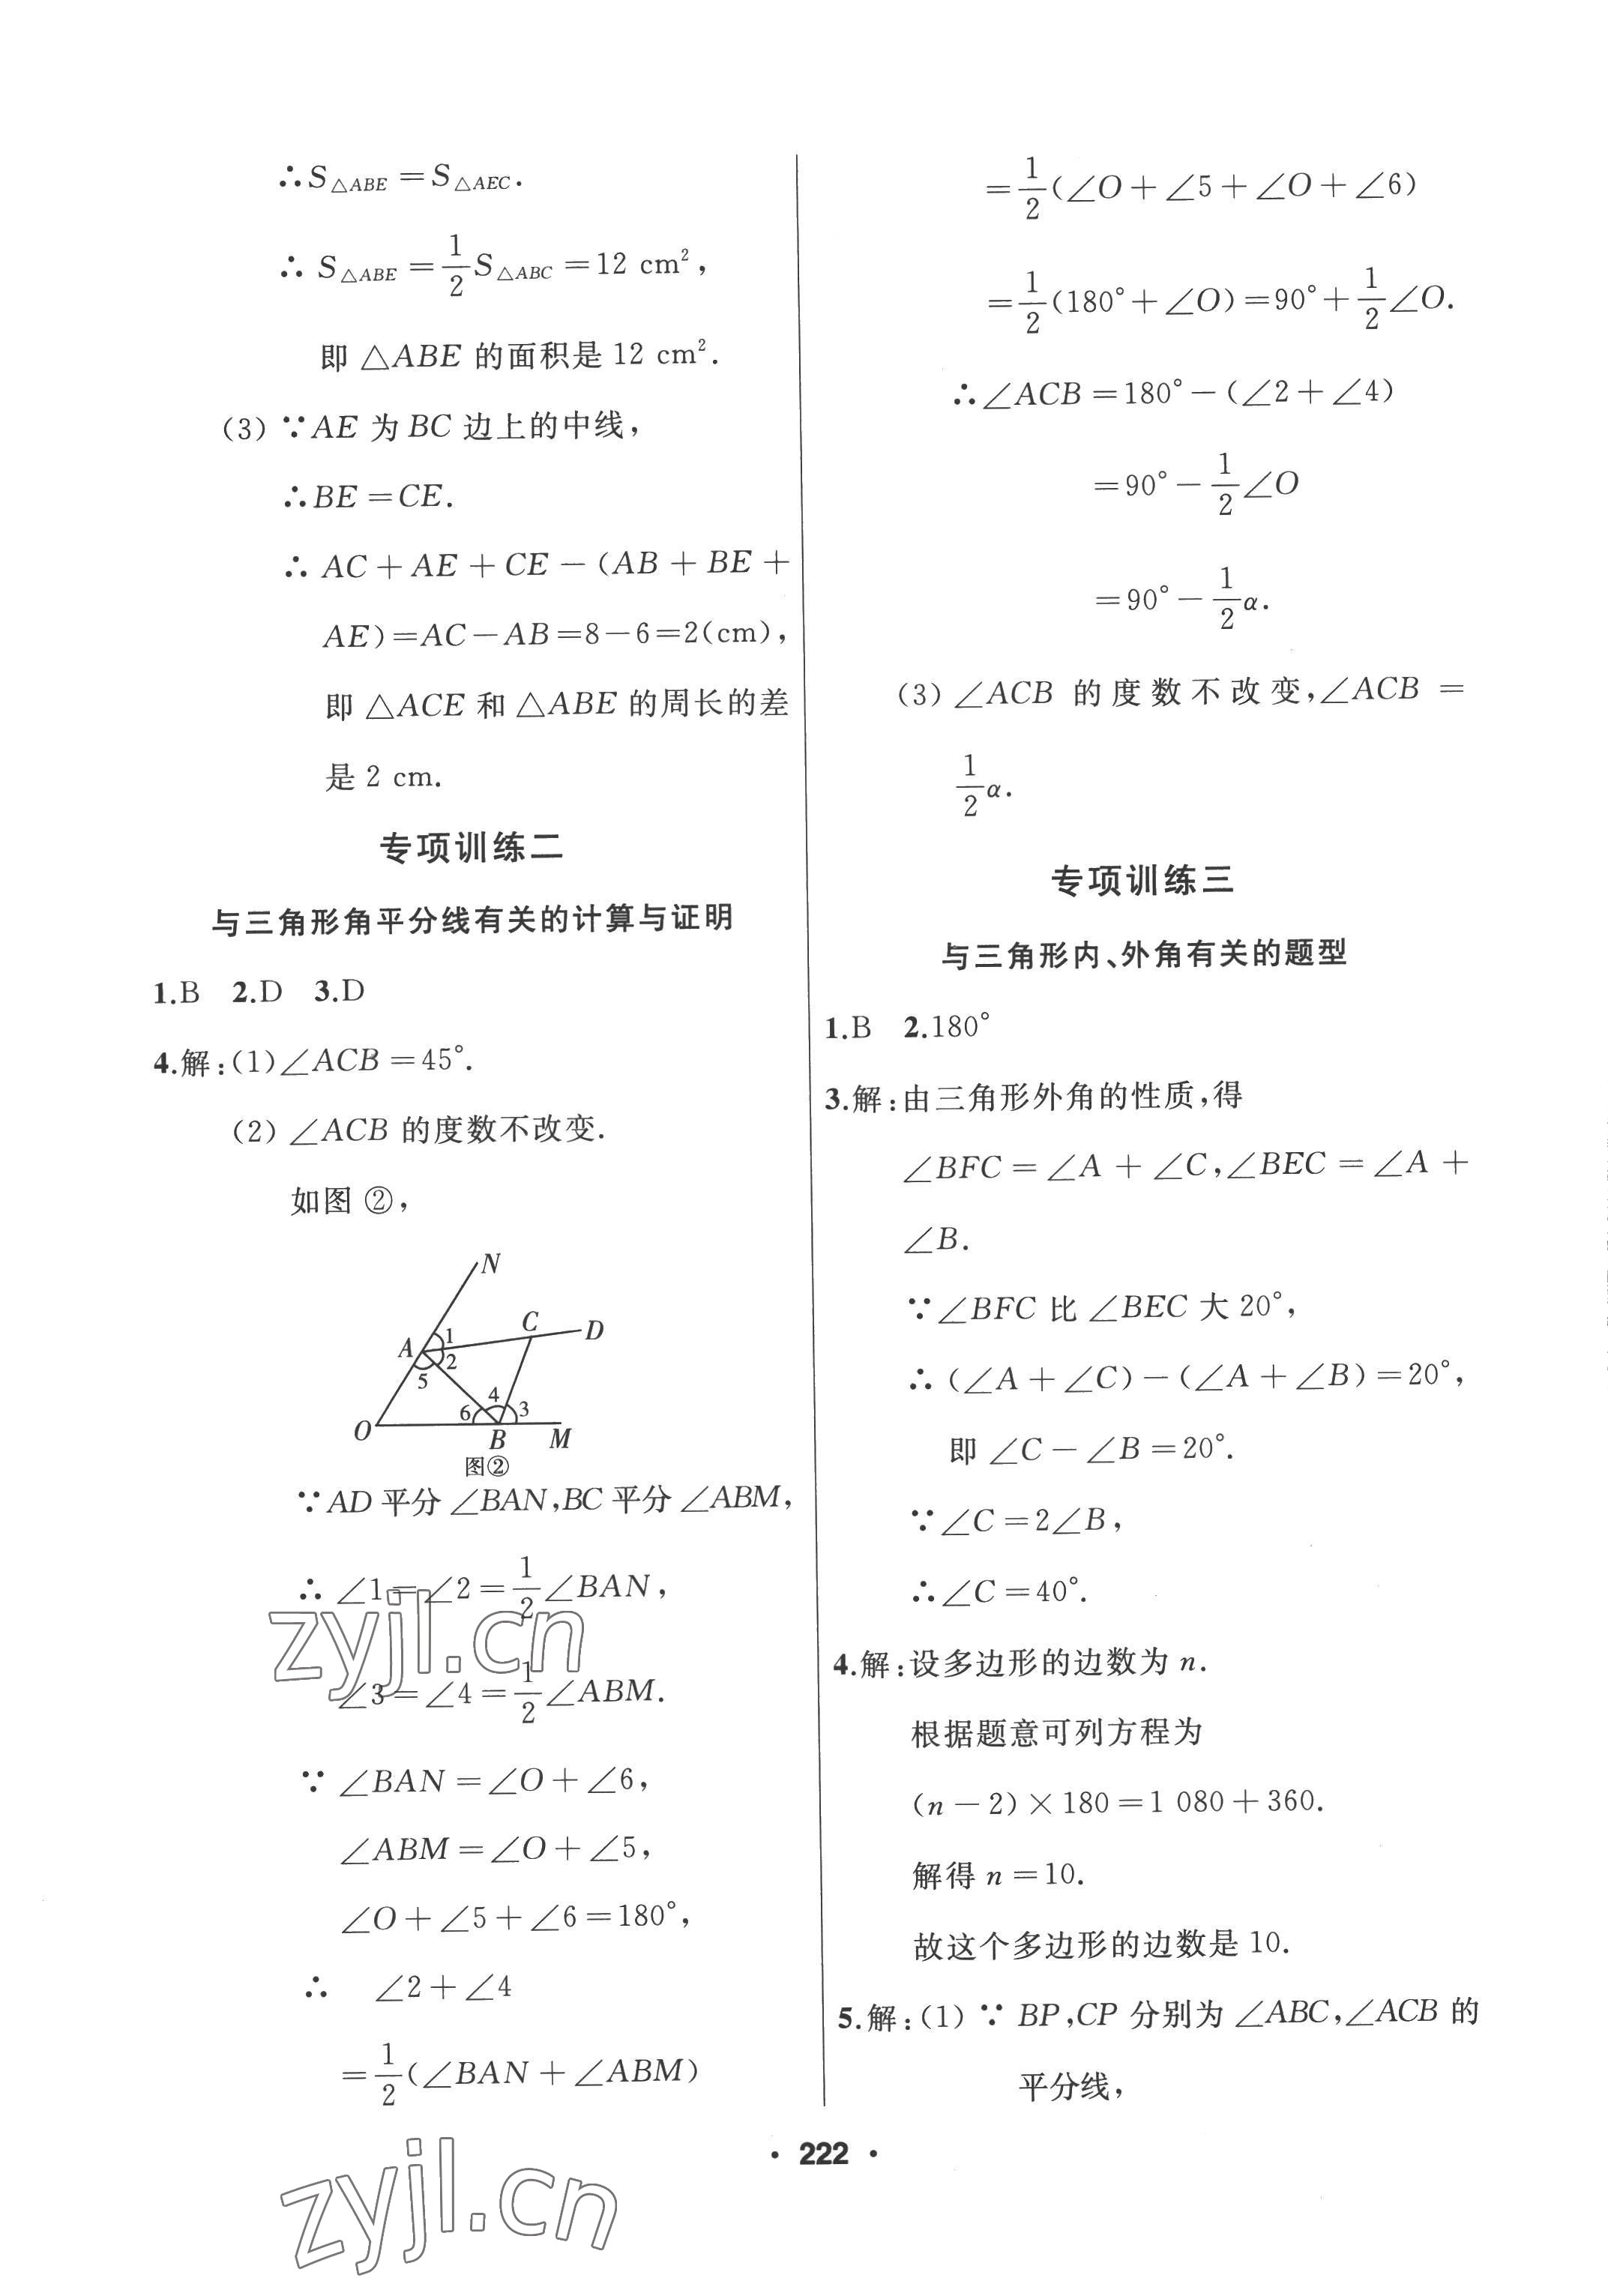 ∴S△ABE=S△AEC.
∴ S△ABE=1/2 S△ABC=12 cm²,
即 △ABE 的面积是 12 cm².
(3) ∵AE 为 BC 边上的中线,
∴BE=CE.
∴ AC+AE+CE-(AB+BE+
AE)=AC-AB=8-6=2(cm),
即 △ACE 和 △ABE 的周长的差
是 2 cm.
专项训练二
与三角形角平分线有关的计算与证明
1.B 2.D 3.D
4.解:(1)∠ACB=45°.
(2) ∠ACB 的度数不改变.
如图 ②,
N
A 1 C D
2
5
4
6 3
O B M
图②
∵AD 平分 ∠BAN,BC 平分 ∠ABM,
∴ ∠1=∠2=1/2∠BAN,
∠3=∠4=1/2∠ABM.
∵ ∠BAN=∠O+∠6,
∠ABM=∠O+∠5,
∠O+∠5+∠6=180°,
∴ ∠2+∠4
=1/2(∠BAN+∠ABM)
=1/2(∠O+∠5+∠O+∠6)
=1/2(180°+∠O)=90°+1/2∠O.
∴∠ACB=180°-(∠2+∠4)
=90°-1/2∠O
=90°-1/2α.
(3) ∠ACB 的度数不改变,∠ACB=
1/2α.
专项训练三
与三角形内、外角有关的题型
1.B 2.180°
3.解:由三角形外角的性质,得
∠BFC=∠A+∠C,∠BEC=∠A+
∠B.
∵∠BFC 比 ∠BEC 大 20°,
∴ (∠A+∠C)-(∠A+∠B)=20°,
即 ∠C-∠B=20°.
∵∠C=2∠B,
∴∠C=40°.
4.解:设多边形的边数为 n.
根据题意可列方程为
(n-2)×180=1 080+360.
解得 n=10.
故这个多边形的边数是 10.
5.解:(1) ∵ BP,CP 分别为 ∠ABC,∠ACB 的
平分线,
· 222 ·
zyjl.cn
zyjl.cn